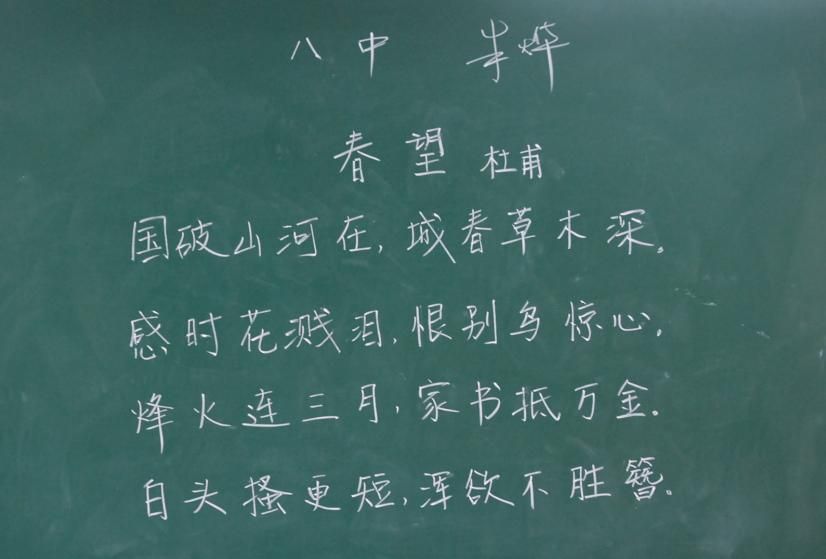 八中 朱烨
春望 杜甫
国破山河在,城春草木深。
感时花溅泪,恨别鸟惊心。
烽火连三月,家书抵万金.
白头搔更短,浑欲不胜簪。